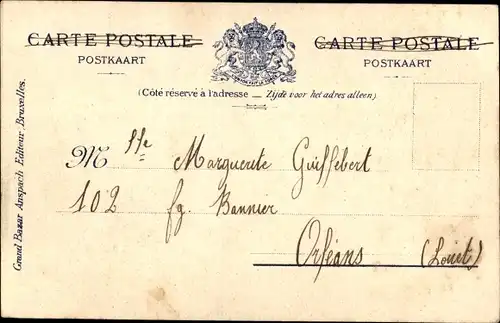 CARTE POSTALE
POSTKAART
CARTE POSTALE
POSTKAART
(Côté réservé à l'adresse _ Zijde voor het adres alleen)
Grand Bazar Anspach Editeur, Bruxelles.
Mlle Marguerite Guiffebert
102 fg. Bannier
Orléans (Loiret)